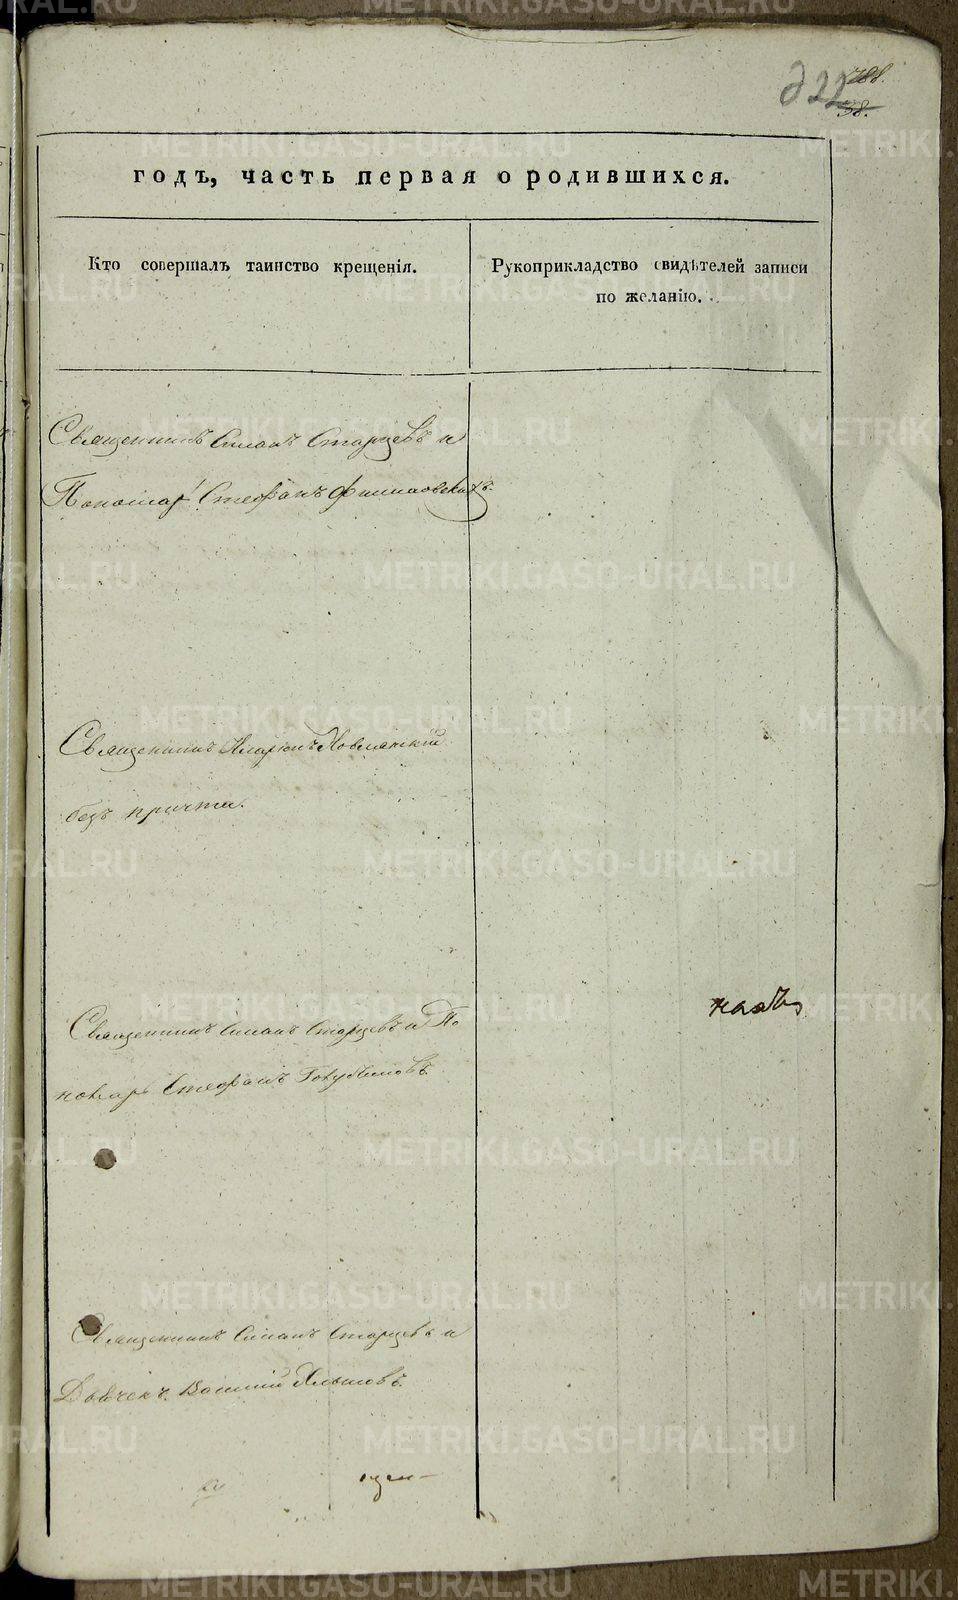 222 788.
38.
годъ, часть первая о родившихся.
Кто совершалъ таинство крещенія.
Рукоприкладство свидѣтелей записи
по желанію.
Священникъ Симонъ Старцевъ и
Пономарь Стефанъ
Священникъ Иларіонъ
безъ причта.
Священникъ Симонъ Старцевъ и По
номарь Стефанъ
Священникъ Симонъ Старцевъ и
Дьячекъ Василій
METRIKI.GASO-URAL.RU